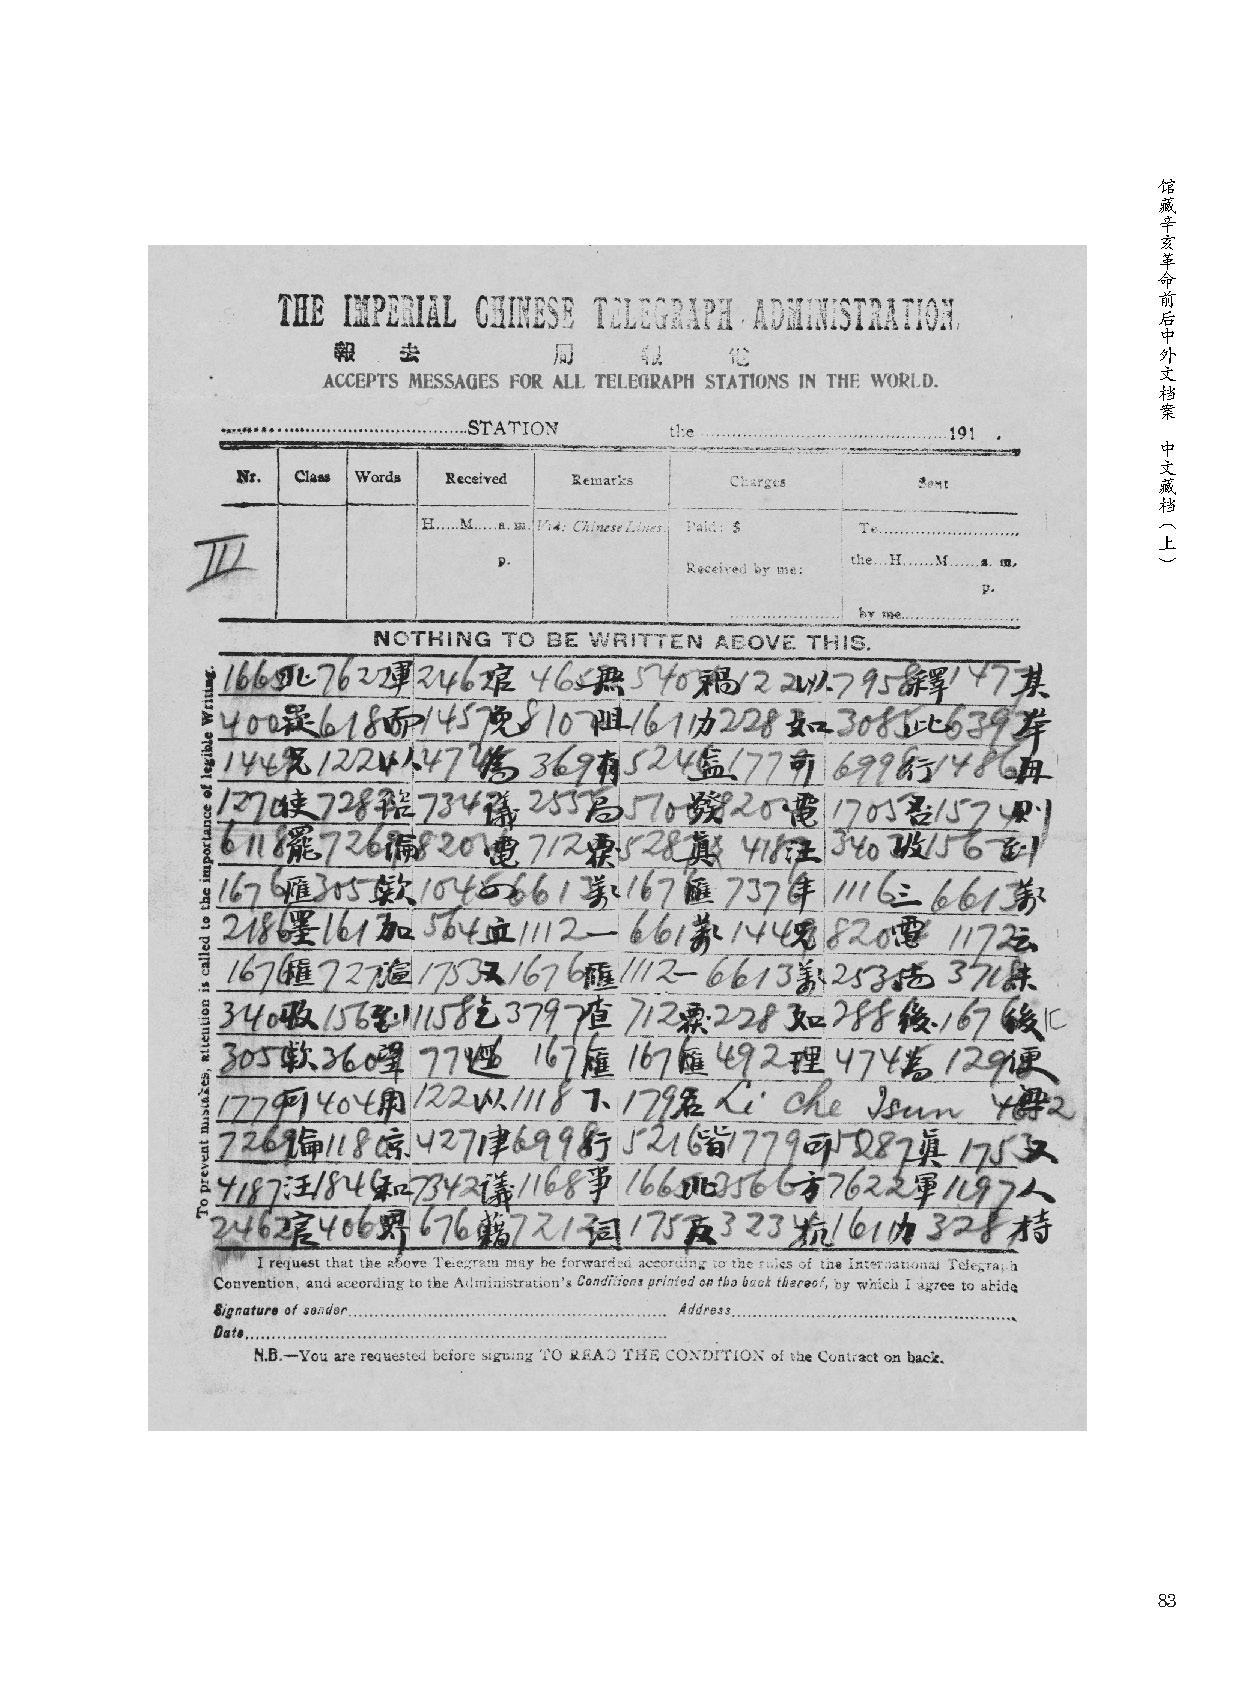 THE IMPERIAL CHINESE TELEGRAPH ADMINISTRATION.
報 去 局 報 電
ACCEPTS MESSAGES FOR ALL TELEGRAPH STATIONS IN THE WORLD.
STATION the 191 .
Nr. Class Words Received Remarks Charges Sent
H.....M.....a. m. Via: Chinese Lines. Paid: $ To
III p. Received by me: the...H......M......a. m.
p.
by me
NOTHING TO BE WRITTEN ABOVE THIS.
To prevent mistakes, attention is called to the importance of legible Writing.
1665北7622軍2462官465無540禍122以7958釋147其
400疑618而1457免8107阻1611力228如3085此639舉
1449兄122以474為369有524益1779可6998行1486再
1270使728 7342議255局570發820電1705否1574則
6118罷7269論820電712票5287真4187汪340收156到
1676匯305款1045四6613萬1676匯737年1116三6613萬
2186墨161加564並1112一661萬1449兄820電1172云
1676匯727滬1753又1676匯1112一6613萬253尚371未
340收156到1158乞3797查712票228如288後1676後
305款360望774 1676匯1676匯492理474為129便
1779可404用122以1118下179君Li che Tsun
7269論1180京427津6998行5216皆1779可5287真1753又
4187汪1846和7342議1168爭1665北3566方7622軍1197人
2462官406界676藉7212詞175反3234抗1611力328持
I request that the above Telegram may be forwarded according to the rules of the International Telegraph
Convention, and according to the Administration's Conditions printed on the back thereof, by which I agree to abide
Signature of sender Address
Date
N.B.—You are requested before signing TO READ THE CONDITION of the Contract on back.
馆藏辛亥革命前后中外文档案 中文藏档（上）
83